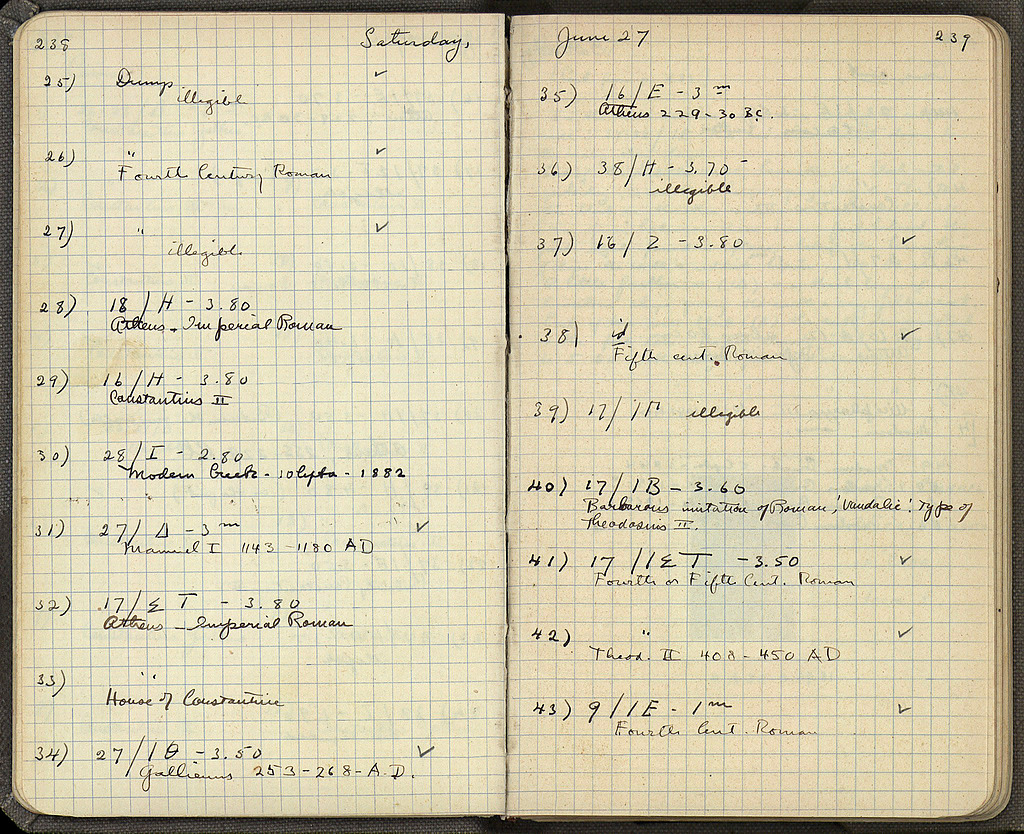 238
Saturday,
25) Dump ✓
illegible
26) " ✓
Fourth Century Roman
27) " ✓
illegible
28) 18/H - 3.80
Athens - Imperial Roman
29) 16/H - 3.80
Constantius II
30) 28/I - 2.80
Modern Greek - 10 lepta - 1882
31) 27/Δ - 3 m ✓
Manuel I 1143 - 1180 AD
32) 17/ΣΤ - 3.80
Athens - Imperial Roman
33) "
House of Constantine
34) 27/ΙΘ - 3.50 ✓
Gallienus 253 - 268 - A.D.
June 27
239
35) 16/E - 3 m
Athens 229 - 30 BC.
36) 38/H - 3.70
illegible
37) 16/Z - 3.80 ✓
38) id ✓
Fifth cent. Roman
39) 17/ illegible
40) 17/IB - 3.60
Barbarous imitation of Roman, 'Vandalic'. Type of
Theodosius II.
41) 17/ΙΣΤ - 3.50 ✓
Fourth or Fifth Cent. Roman
42) " ✓
Theod. II 408 - 450 AD
43) 9/IE - 1 m ✓
Fourth Cent. Roman